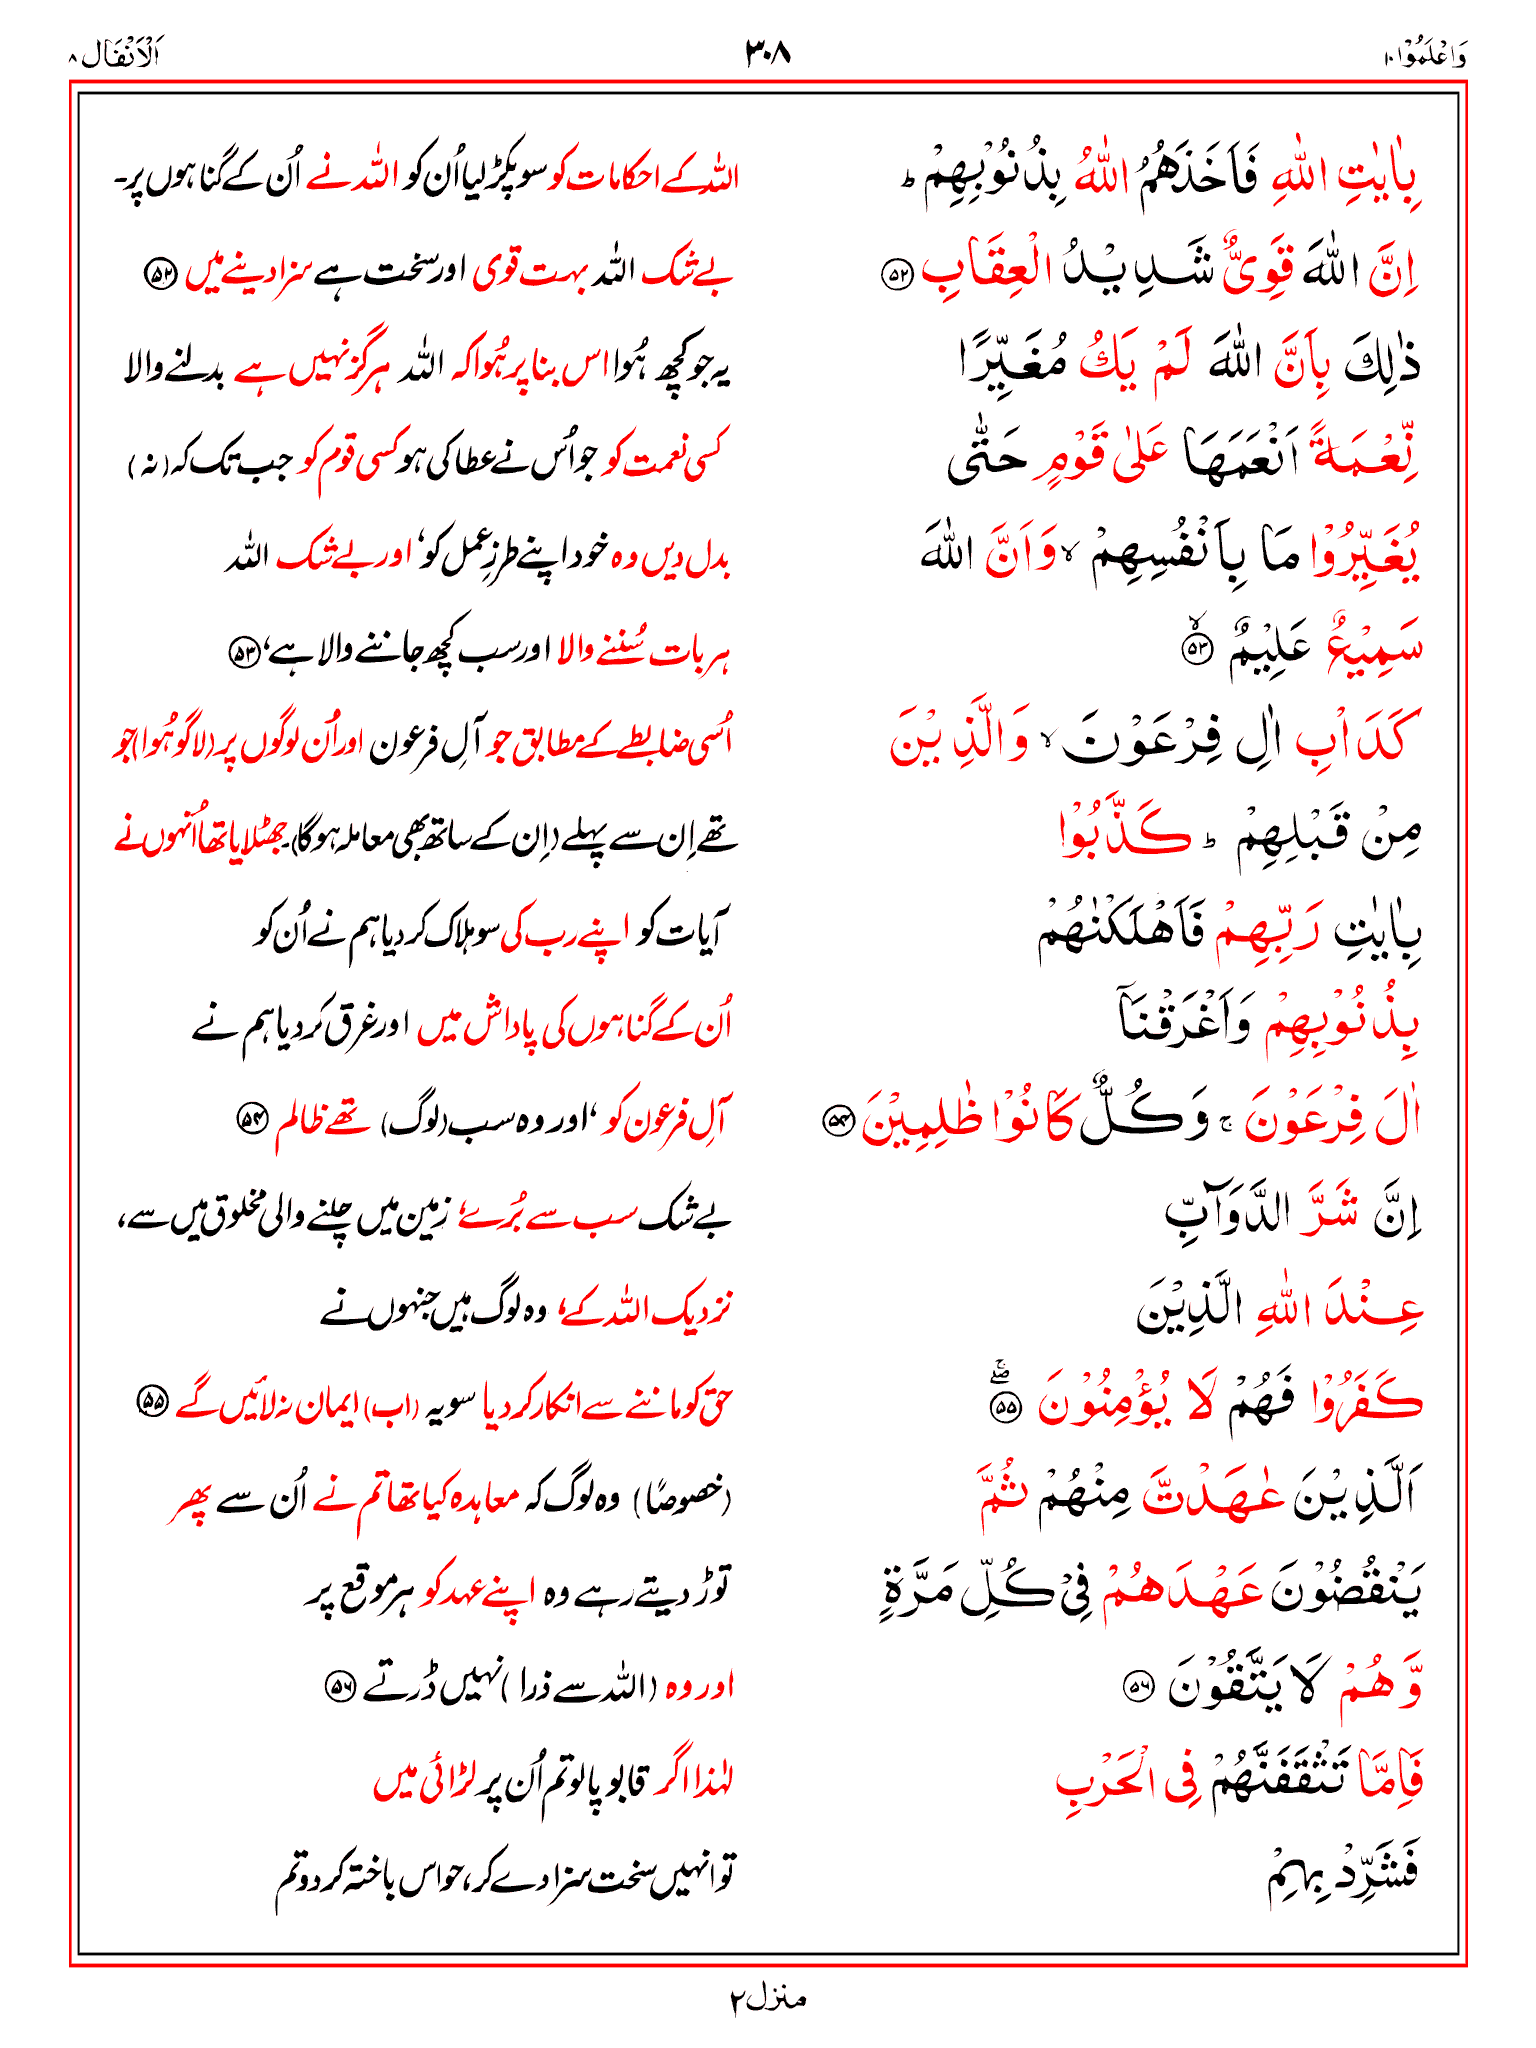 وَاعْلَمُوْا ۱۰ ۳۰۸ اَلْاَنْفَال ۸
بِاٰیٰتِ اللّٰهِ فَاَخَذَهُمُ اللّٰهُ بِذُنُوْبِهِمْ ؕ اللہ کے احکامات کو سو پکڑ لیا اُن کو اللہ نے اُن کے گناہوں پر۔
اِنَّ اللّٰهَ قَوِیٌّ شَدِیْدُ الْعِقَابِ ۵۲ بے شک اللہ بہت قوی اور سخت ہے سزا دینے میں ۵۲
ذٰلِكَ بِاَنَّ اللّٰهَ لَمْ یَكُ مُغَیِّرًا یہ جو کچھ ہُوا اس بنا پر ہُوا کہ اللہ ہرگز نہیں ہے بدلنے والا
نِّعْمَةً اَنْعَمَهَا عَلٰی قَوْمٍ حَتّٰی کسی نعمت کو جو اُس نے عطا کی ہو کسی قوم کو جب تک کہ (نہ)
یُغَیِّرُوْا مَا بِاَنْفُسِهِمْ ۙ وَاَنَّ اللّٰهَ بدل دیں وہ خود اپنے طرزِ عمل کو، اور بے شک اللہ
سَمِیْعٌ عَلِیْمٌ ۵۳ۙ ہر بات سُننے والا اور سب کچھ جاننے والا ہے، ۵۳
كَدَاْبِ اٰلِ فِرْعَوْنَ ۙ وَالَّذِیْنَ اُسی ضابطے کے مطابق جو آلِ فرعون اور اُن لوگوں پر (لاگو ہُوا) جو
مِنْ قَبْلِهِمْ ؕ كَذَّبُوْا تھے اِن سے پہلے (اِن کے ساتھ بھی معاملہ ہوگا)۔ جھٹلایا تھا اُنہوں نے
بِاٰیٰتِ رَبِّهِمْ فَاَهْلَكْنٰهُمْ آیات کو اپنے رب کی سو ہلاک کر دیا ہم نے اُن کو
بِذُنُوْبِهِمْ وَاَغْرَقْنَاۤ اُن کے گناہوں کی پاداش میں اور غرق کر دیا ہم نے
اٰلَ فِرْعَوْنَ ۚ وَكُلٌّ كَانُوْا ظٰلِمِیْنَ ۵۴ آلِ فرعون کو، اور وہ سب (لوگ) تھے ظالم ۵۴
اِنَّ شَرَّ الدَّوَآبِّ بے شک سب سے بُرے، زمین میں چلنے والی مخلوق میں سے،
عِنْدَ اللّٰهِ الَّذِیْنَ نزدیک اللہ کے، وہ لوگ ہیں جنہوں نے
كَفَرُوْا فَهُمْ لَا یُؤْمِنُوْنَ ۵۵ۖۚ حق کو ماننے سے انکار کر دیا سو یہ (اب) ایمان نہ لائیں گے ۵۵
اَلَّذِیْنَ عٰهَدْتَّ مِنْهُمْ ثُمَّ (خصوصًا) وہ لوگ کہ معاہدہ کیا تھا تم نے اُن سے پھر
یَنْقُضُوْنَ عَهْدَهُمْ فِیْ كُلِّ مَرَّةٍ توڑ دیتے رہے وہ اپنے عہد کو ہر موقع پر
وَّهُمْ لَا یَتَّقُوْنَ ۵۶ اور وہ (اللہ سے ذرا) نہیں ڈرتے ۵۶
فَاِمَّا تَثْقَفَنَّهُمْ فِی الْحَرْبِ لہٰذا اگر قابو پا لو تم اُن پر لڑائی میں
فَشَرِّدْ بِهِمْ تو انہیں سخت سزا دے کر، حواس باختہ کر دو تم
منزل ۲